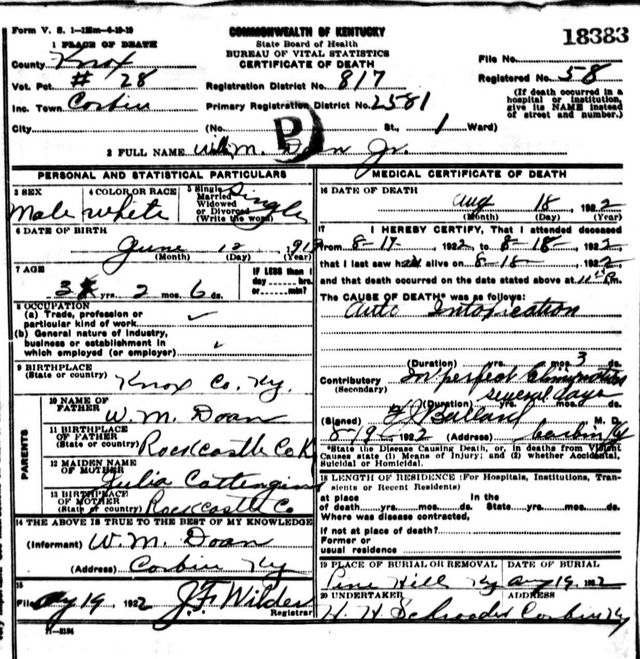 Form V. S. 1-15m-4-19-19
COMMONWEALTH OF KENTUCKY
State Board of Health
BUREAU OF VITAL STATISTICS
CERTIFICATE OF DEATH
18383
1 PLACE OF DEATH
County Knox
Vot. Pct. # 28
Inc. Town Corbin
City
Registration District No. 817
Primary Registration District No. 2581
(No. St., 1 Ward)
File No.
Registered No. 58
(If death occurred in a
hospital or institution,
give its NAME instead
of street and number.)
P
2 FULL NAME Will M. Doan Jr.
PERSONAL AND STATISTICAL PARTICULARS
3 SEX Male
4 COLOR OR RACE white
5 Single Married Widowed or Divorced (Write the word) Single
6 DATE OF BIRTH
June 12, 191
(Month) (Day) (Year)
7 AGE
3 yrs. 2 mos. 6 ds.
IF LESS than 1
day hrs.
or min.?
8 OCCUPATION
(a) Trade, profession or
particular kind of work ✓
(b) General nature of industry,
business or establishment in
which employed (or employer) ✓
9 BIRTHPLACE
(State or country) Knox Co. Ky.
PARENTS
10 NAME OF
FATHER W. M. Doan
11 BIRTHPLACE
OF FATHER
(State or country) Rockcastle Co K
12 MAIDEN NAME
OF MOTHER Julia
13 BIRTHPLACE
OF MOTHER
(State or country) Rockcastle Co
14 THE ABOVE IS TRUE TO THE BEST OF MY KNOWLEDGE
(Informant) W. M. Doan
(Address) Corbin Ky
15
Filed Aug 19, 1922 J F Wilder
Registrar
11-3184
MEDICAL CERTIFICATE OF DEATH
16 DATE OF DEATH
Aug 18, 1922
(Month) (Day) (Year)
17 I HEREBY CERTIFY, That I attended deceased
from 8-17, 1922 to 8-18, 1922
that I last saw alive on 8-18, 1922
and that death occurred on the date stated above at 11 P m.
The CAUSE OF DEATH* was as follows:
Auto Intoxication
(Duration) yrs. mos. 3 ds.
Contributory Imperfect Elimination
(Secondary) several days
(Duration) yrs. mos. ds.
(Signed) M. D.
8-19, 1922 (Address) Corbin Ky
*State the Disease Causing Death, or, in deaths from Violent
Causes state (1) Means of Injury; and (2) whether Accidental,
Suicidal or Homicidal.
18 LENGTH OF RESIDENCE (For Hospitals, Institutions, Tran-
sients or Recent Residents)
at place In the
of death yrs. mos. ds. State yrs. mos. ds.
Where was disease contracted,
if not at place of death?
Former or
usual residence
19 PLACE OF BURIAL OR REMOVAL DATE OF BURIAL
Pine Hill Ky Aug 19, 1922
20 UNDERTAKER ADDRESS
H. H. Schrooder Corbin Ky